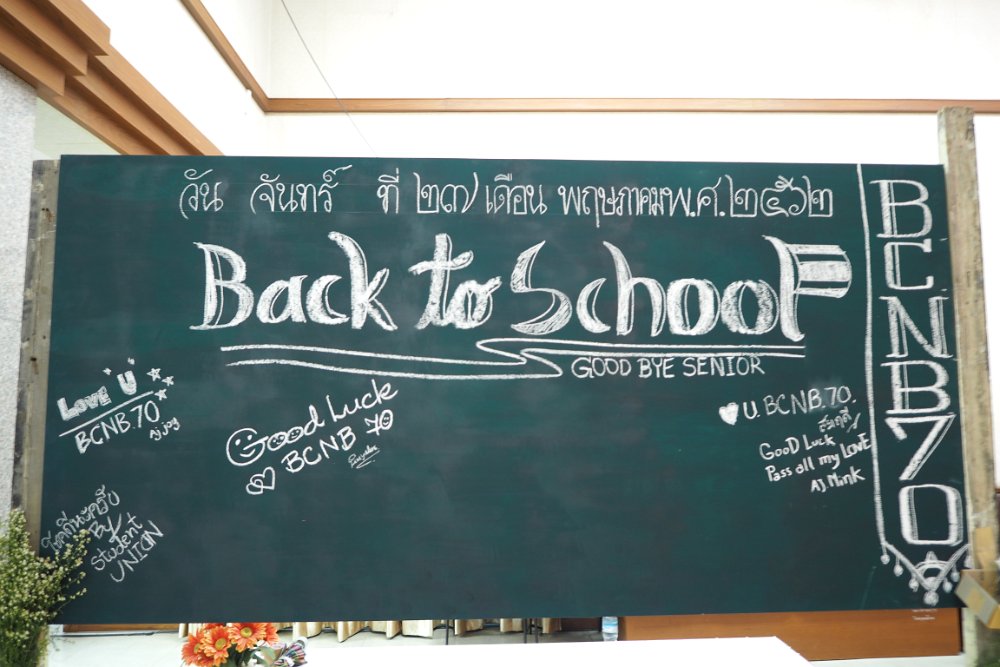 วัน จันทร์ ที่ ๒๗ เดือน พฤษภาคม พ.ศ. ๒๕๖๒
Back to School
GOOD BYE SENIOR
BCNB70
LOVE U
BCNB.70
Aj joy
Good Luck
BCNB 70
U. BCNB.70.
GooD Luck
Pass all my LOVE
AJ.Mink
โชคดีนะครับ
By
Student
UNION